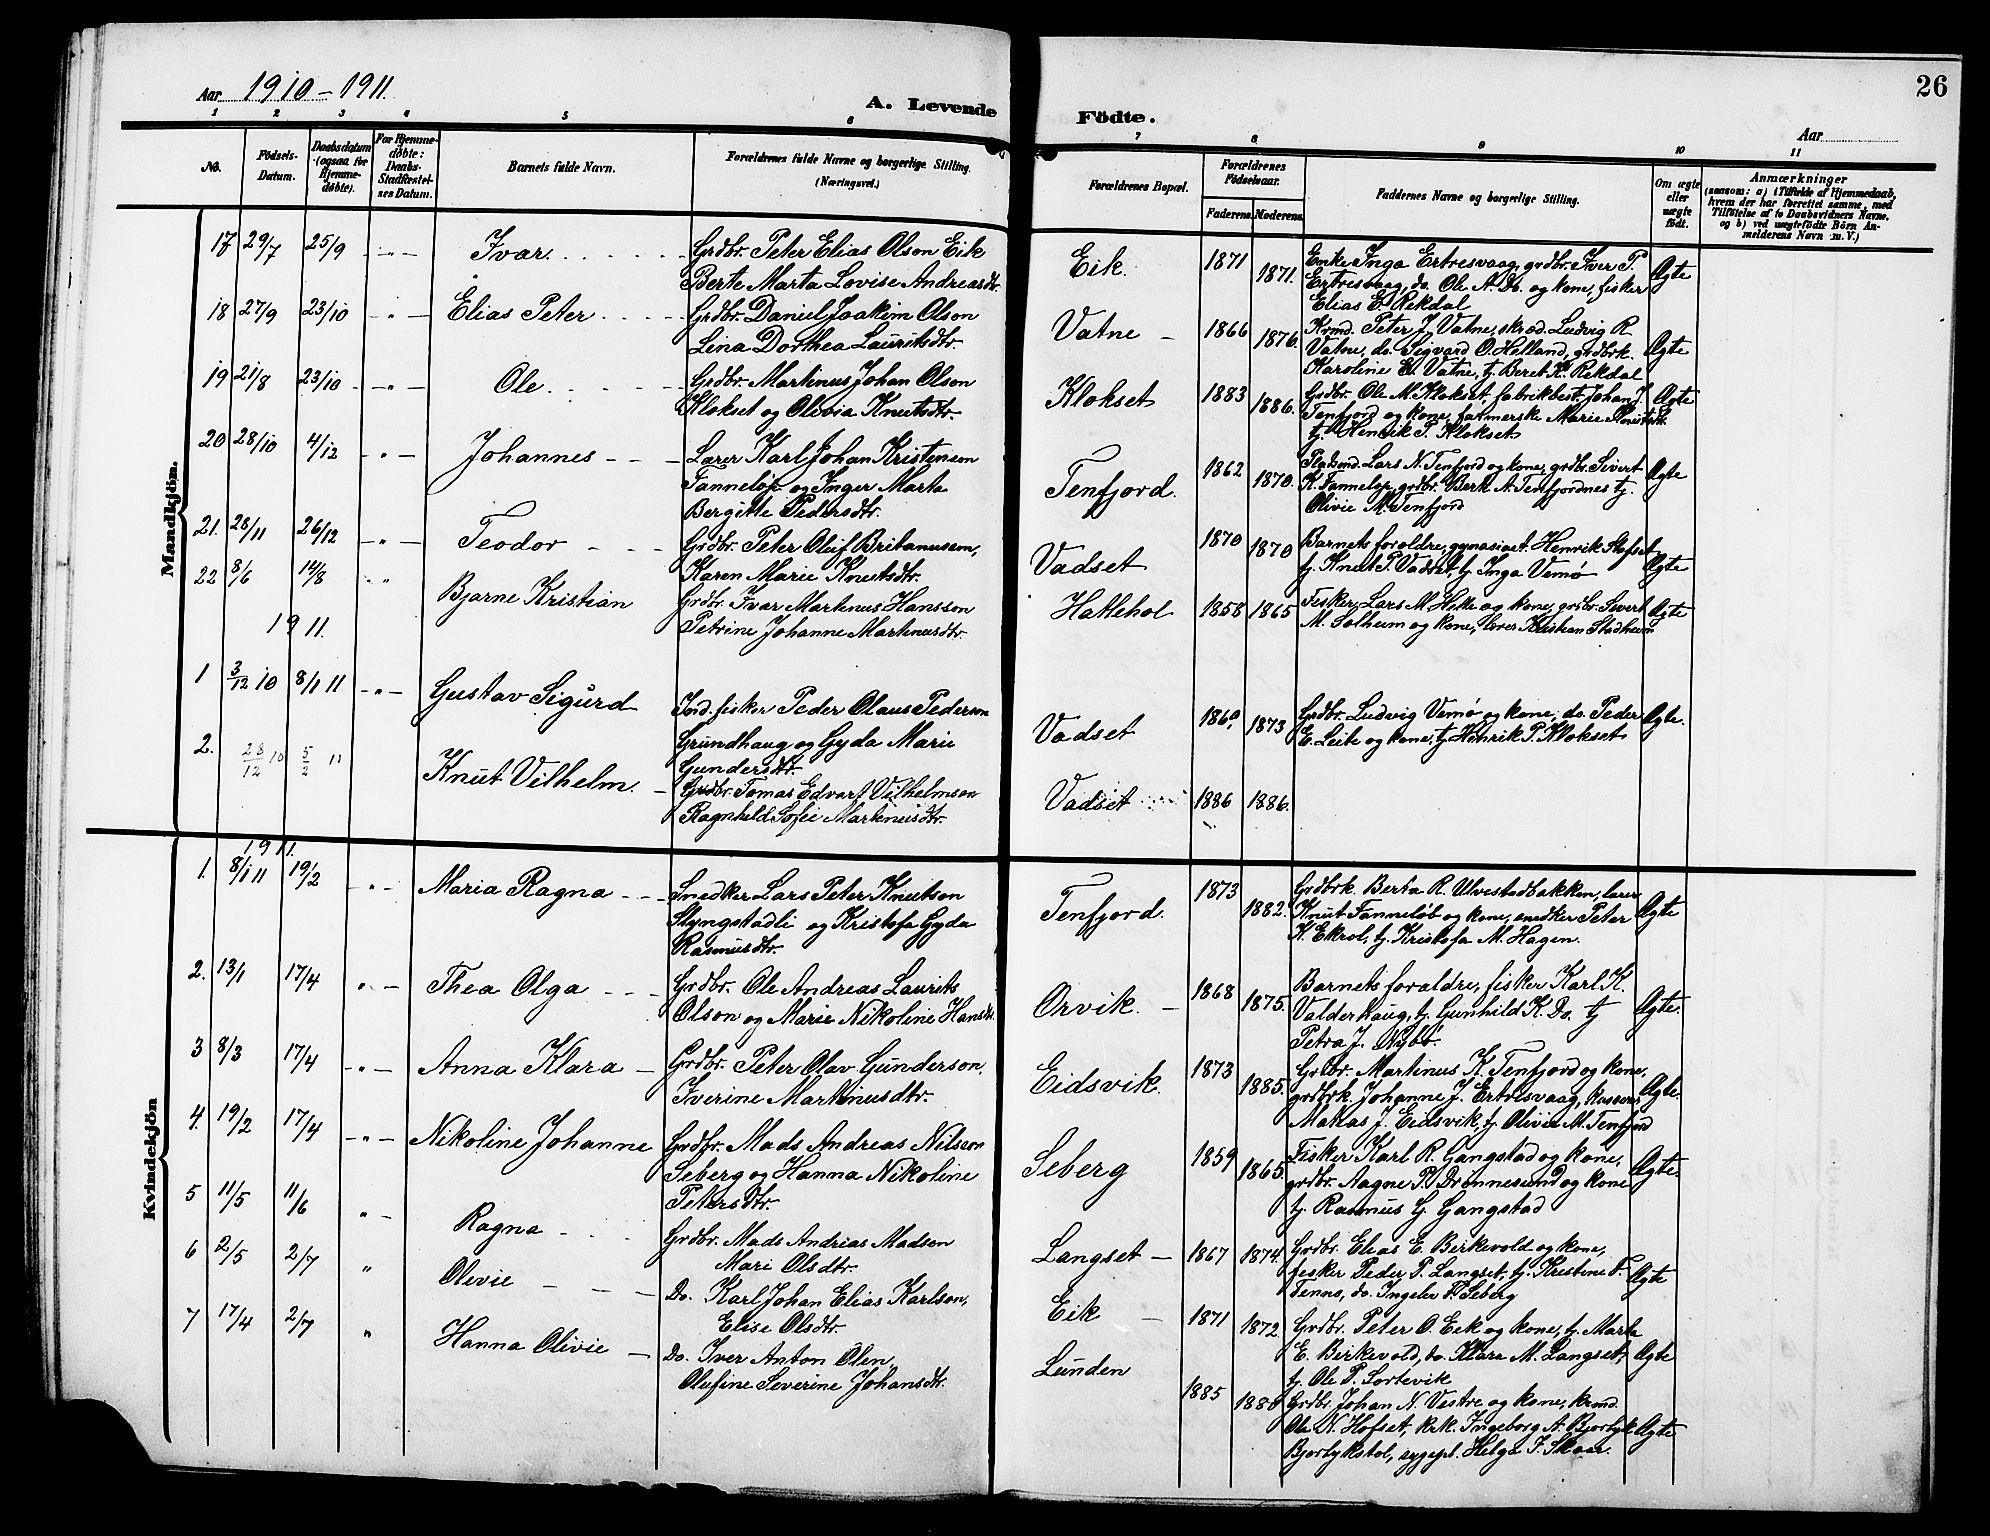 26
Aar 1910-1911.
A. Levende Födte.
Aar
1 2 3 4 5 6 7 8 9 10 11
No.
Födsels-Datum.
Daabsdatum (ogsaa for Hjemmedøbte).
For Hjemmedøbte: Daabs-Stadfæstelses Datum.
Barnets fulde Navn.
Forældrenes fulde Navne og borgerlige Stilling.
(Næringsvei.)
Forældrenes Bopæl.
Forældrenes Födselsaar.
Faderens. Moderens.
Faddernes Navne og borgerlige Stilling.
Om ægte eller uægte født.
Anmærkninger
(saasom: a) i Tilfælde af Hjemmedaab, hvem der har forrettet samme, med Tilføielse af to Daabsvidners Navne, og b) ved uægtefødte Börn Anmelderens Navn m. V.)
Mandkjön.
17 29/7 25/9 -"- Ivar
Grdbr. Peter Elias Olson Eik
Berte Marta Lovise Andreasdtr.
Eik. 1871 1871.
Enke Inga Ertresvaag, grdbr. Iver P.
Ertresvaag, do. Ole A. Do. og kone, fisker
Elias E. Rekdal
Ægte
18 27/9 23/10 -"- Elias Peter
Grdbr. Daniel Joakim Olson
Lina Dorthea Lauritsdtr.
Vatne 1866 1876.
Krmd. Peter J. Vatne, skræd. Ludvig R.
Vatne, do. Sigvard O. Helland, grdbrk.
Karoline E. Vatne, tj. Beret K. Rekdal
Ægte
19 21/8 23/10 -"- Ole
Grdbr. Martinus Johan Olson
Klokset og Olivia Knutsdtr.
Klokset 1883 1886.
Grdbr. Ole M. Klokset, fabrikbest. Johan J.
Tenfjord og kone, farmerske Marie
tj. Henrik P. Klokset
Ægte
20 28/10 4/12 -"- Johannes
Lærer Karl Johan Kristenson
Fanneløp og Inger Marta
Bergitte Pedersdtr.
Tenfjord. 1862 1870.
Pladsmd. Lars N. Tenfjord og kone, grdbr. Sivert
K. Fanneløp, grdbr. A. Tenfjordnes tj.
Olivie M. Tenfjord
Ægte
21. 28/11 26/12 -"- Teodor
Grdbr. Peter Oluf
Karen Marie Knutsdtr.
Vadset 1870 1870
Barnets foroldre, gymnasiast. Henrik
tj. Knut P. Vadset, tj. Inga Vemø
Ægte
22 8/6 14/8 " Bjarne Kristian
Grdbr. Ivar Martinus Hansson
Petrine Johanne Martinusdtr.
Hattehol 1858 1865
Fisker Lars M. Helle og kone, grdbr. Severt
M. Solheim og kone, lærer Kristian Stadheim
Ægte
1911.
1 3/12 10 8/1 11 -"- Gustav Sigurd
Jord.fisker Peder Olaus Pederson
Grundhaug og Gyda Marie
Gundersdtr.
Vadset 1873
Grdbr. Ludvig Vemø og kone, do. Peder
E. Leite og kone, tj. Henrik P. Klokset
Ægte.
2. 28/12 10 5/2 11 Knut Vilhelm.
Grdbr. Tomas Edvart Vilhelmson
Ragnhild Sofie Martinusdtr.
Vadset 1886 1886.
Kvindekjön
1911.
1. 8/1 11 19/2 -"- Maria Ragna
Snedker Lars Peter Knutson
Slyngstadli og Kristofa Gyda
Rasmusdtr.
Tenfjord. 1873 1882.
Grdbrk. Berta R. Ulvestadbakken, lærer
Knut Fanneløb og kone, snedker Peter
K. Ekrol, tj. Kristofa M. Hagen.
Ægte
2. 13/1 17/4 " Thea Olga
Grdbr. Ole Andreas Laurits
Olson og Marie Nikoline Hansdt.
Orvik. 1868 1875.
Barnets foraldre, fisker Karl K.
Valderhaug, tj. Gunhild K. Do. tj
Petra J. Nybø.
Ægte.
3 8/3 17/4 -"- Anna Klara
Grdbr. Peter Olav Gunderson,
Iverine Martinusdtr.
Eidsvik. 1873 1885.
Grdbr. Martinus K. Tenfjord og kone,
grdbrk. Johanne J. Ertresvaag,
Matias J. Eidsvik, tj. Olivia M. Tenfjord
Ægte.
4. 19/2 17/4 -"- Nikoline Johanne
Grdbr. Mads Andreas Nilsson
Seberg og Hanna Nikoline
Petersdtr.
Seberg 1859 1865.
Fisker Karl R. Gangstad og kone,
grdbr. Aagne P. Drønnesund og kone
tj. Rasmus G. Gangstad
Ægte.
5 11/5 11/6 " Ragna
Grdbr. Mads Andrias Madsen
Mari Olsdtr.
Langset 1867 1874.
Grdbr. Elias E. Birkevold og kone,
fisker Peder P. Langset, tj. Kristine F.
Tennø, do. Ingeler P. Seberg
Ægte
6 2/5 2/7 " Olivie
Do. Karl Johan Elias Karlson,
Elise Olsdtr.
Eik 1871 1872
Grdbr. Peter O. Eek og kone, tj. Marta
E. Birkevold, do. Klara M. Langset,
tj. Ole P. Sortevik
Ægte
7 17/4 2/7 " Hanna Olivie
Do. Iver Anton Olen,
Olufine Severine Johansdtr.
Lunden 1885 1880
Grdbr. Johan N. Vestre og kone, krmd.
Ole N. Hofset, krk. Ingeborg A. Bjorlyk
Bjorlykstol, sygepl. Helga J. Skaar.
Ægte